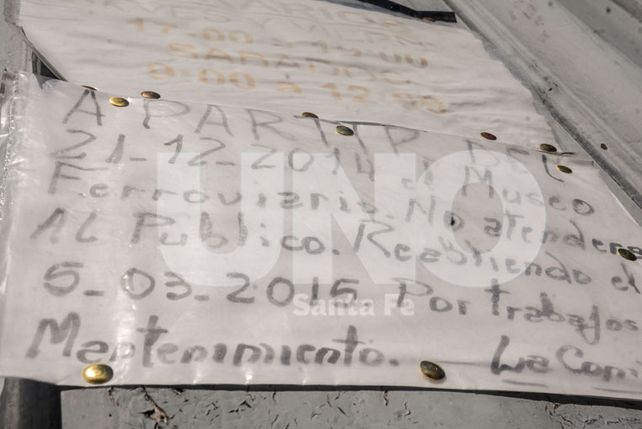 17:00 a 19:00
9:00 a 12:00
A PARTIR DEL
21-12-2014 el Museo
Ferroviario. No atendera
al Público. Reabriendo el
5-03-2015. Por trabajos
Mantenimiento. La Com
UNO
Santa Fe